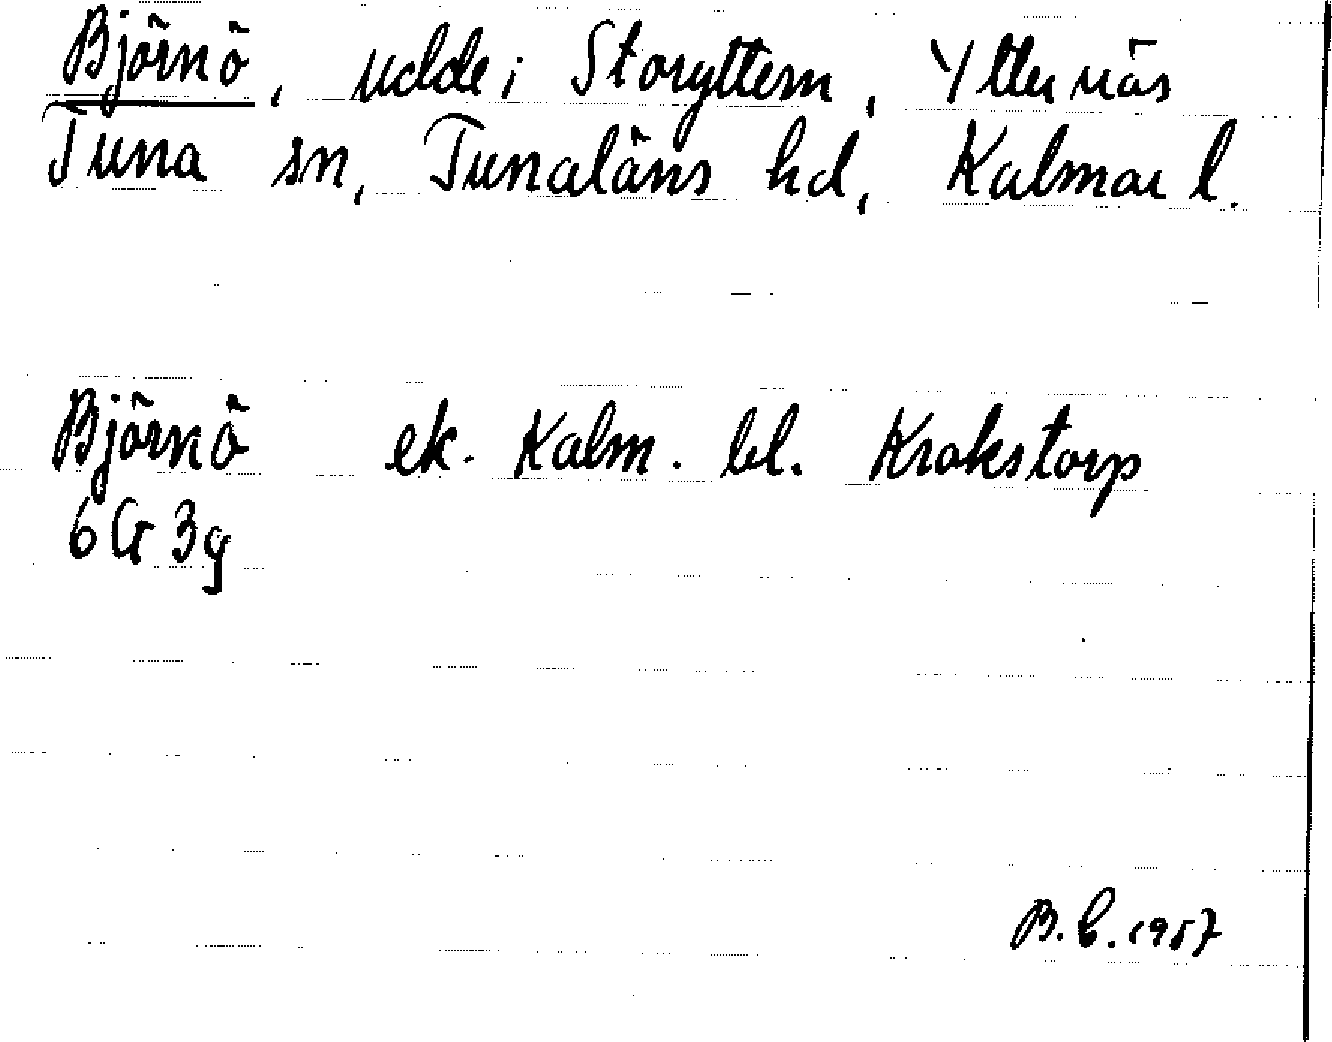 Björnö, udde i Storyttern, Ytternäs
Tuna sn, Tunaläns hd, Kalmar l.
Björnö ek. Kalm. bl. Krokstorp
6G 3g
B.C. 1957